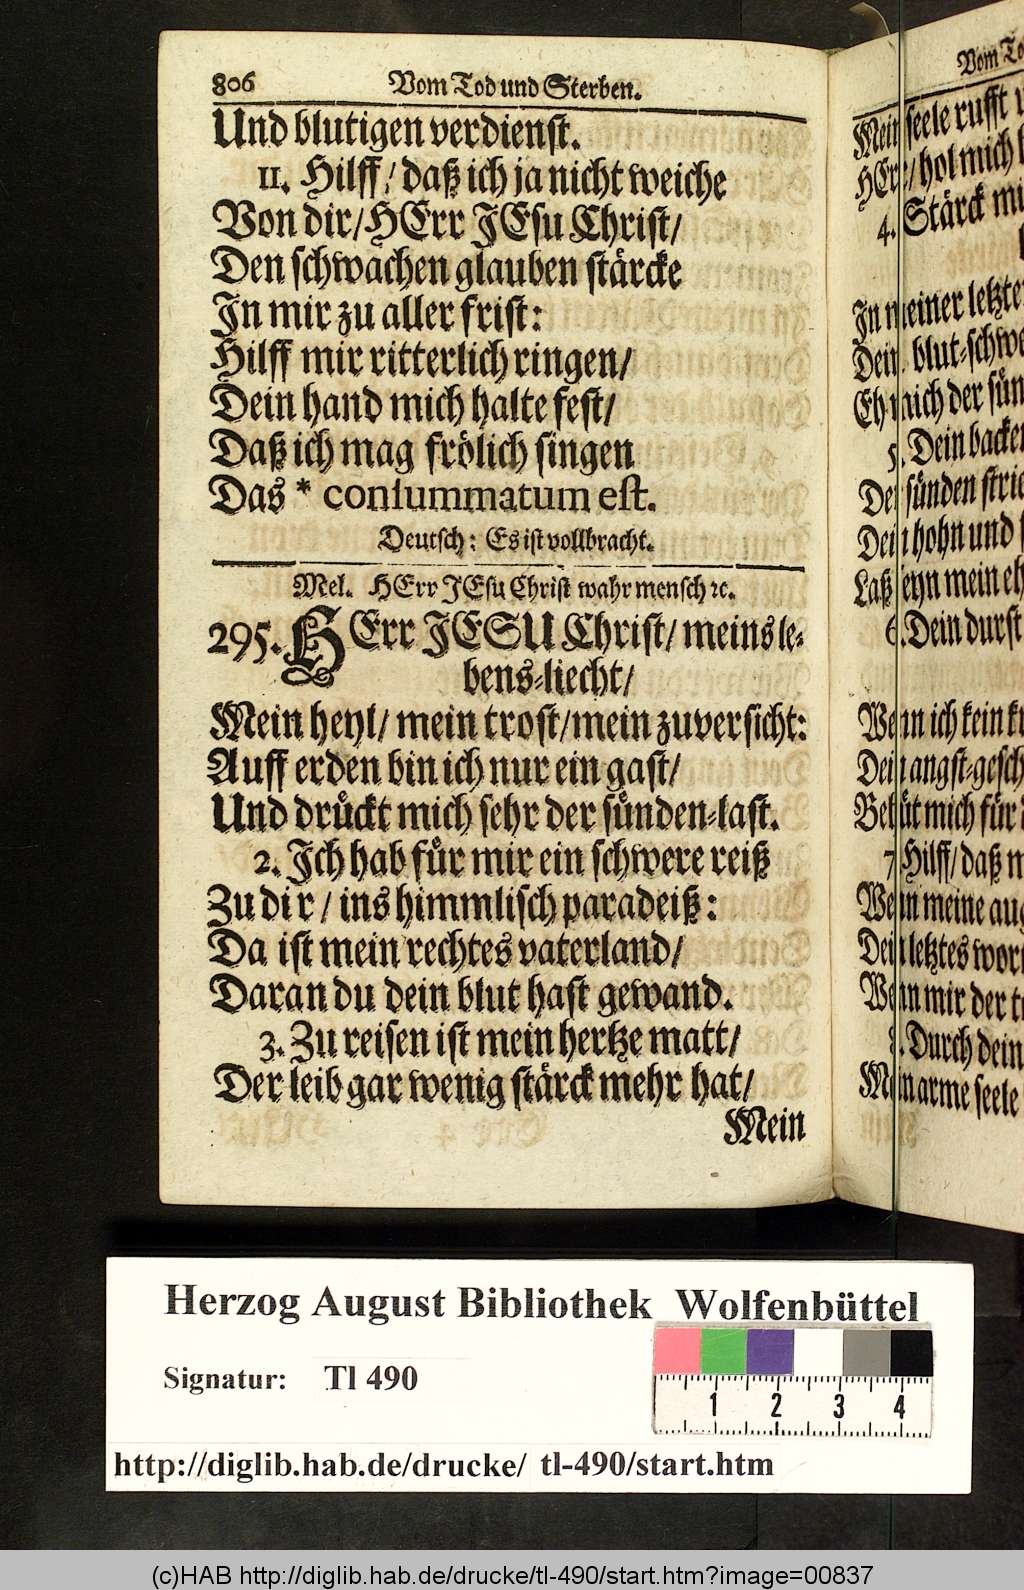 806 Vom Tod und Sterben.
Und blutigen verdienst.
11. Hilff/ daß ich ja nicht weiche
Von dir/ HErr JEsu Christ/
Den schwachen glauben stärcke
In mir zu aller frist:
Hilff mir ritterlich ringen/
Dein hand mich halte fest/
Daß ich mag frölich singen
Das * consummatum est.
Deutsch: Es ist vollbracht.
Mel. HErr JEsu Christ wahr mensch ꝛc.
295. HErr JESU Christ/ meins le-
bens-liecht/
Mein heyl/ mein trost/ mein zuversicht:
Auff erden bin ich nur ein gast/
Und drückt mich sehr der sünden-last.
2. Ich hab für mir ein schwere reiß
Zu dir/ ins himmlisch paradeiß:
Da ist mein rechtes vaterland/
Daran du dein blut hast gewand.
3. Zu reisen ist mein hertze matt/
Der leib gar wenig stärck mehr hat/
Mein
Vom
seele rufft
hol mich
4. Stärck
In meiner
blut-schwe
mich der
5. Dein
sünden
hohn und
Laß seyn mein
6. Dein durst
Wenn ich kein
Dein angst-gesch
Behüt mich für
7. Hilff/ daß
Wenn meine
Dein letztes
Wenn mir der
Durch dein
Mein arme seele
Herzog August Bibliothek Wolfenbüttel
Signatur: Tl 490
1 2 3 4
http://diglib.hab.de/drucke/ tl-490/start.htm
(c)HAB http://diglib.hab.de/drucke/tl-490/start.htm?image=00837